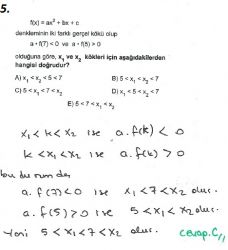 5.
f(x) = ax² + bx + c
denkleminin iki farklı gerçel kökü olup
a • f(7) < 0 ve a • f(5) > 0
olduğuna göre, x₁ ve x₂ kökleri için aşağıdakilerden
hangisi doğrudur?
A) x₁ < x₂ < 5 < 7 B) 5 < x₁ < x₂ < 7
C) 5 < x₁ < 7 < x₂ D) x₁ < 5 < x₂ < 7
E) 5 < 7 < x₁ < x₂
x₁ < k < x₂ ise a.f(k) < 0
k < x₁ < x₂ ise a.f(k) > 0
bu durumda
a.f(7) < 0 ise x₁ < 7 < x₂ olur.
a.f(5) > 0 ise 5 < x₁ < x₂ olur.
Yani 5 < x₁ < 7 < x₂ olur. cevap.C//